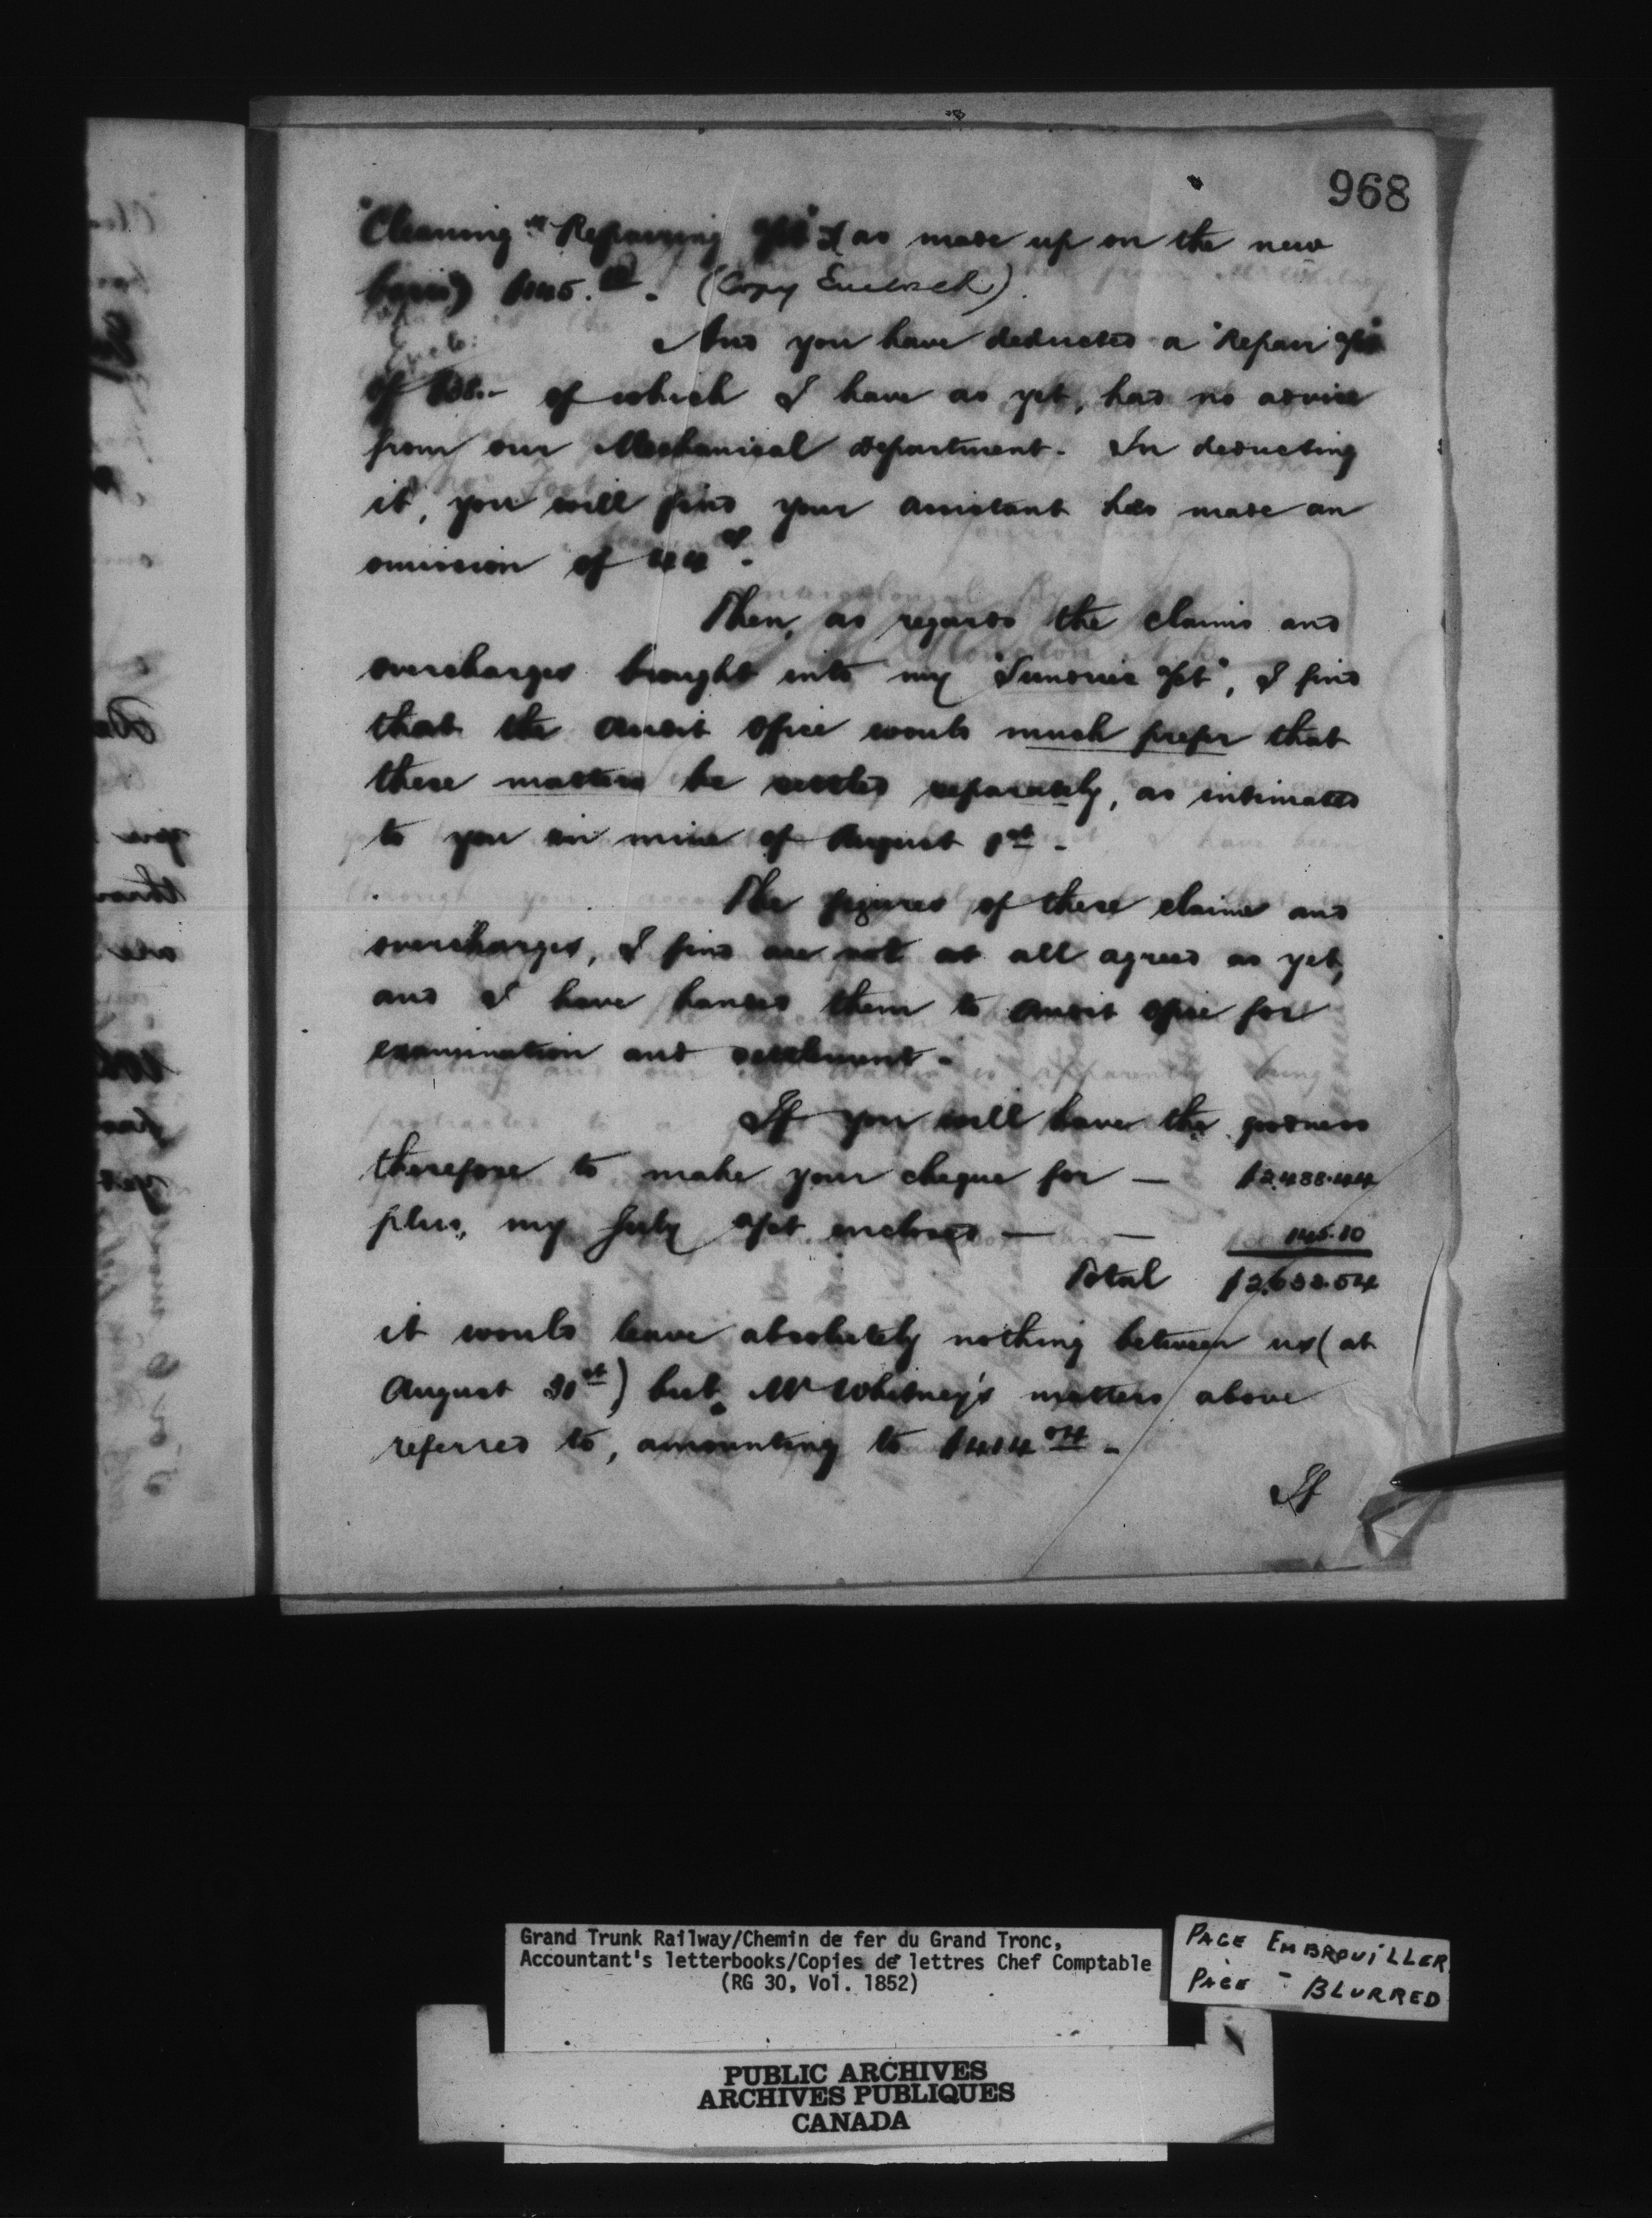 968
"Cleaning & Repairing a/ct" (as made up on the new
basis) $145. (Copy Enclosed).
Enclo:
And you have deducted a "Repair a/ct"
of of which I have as yet, had no advice
from our Mechanical department. In deducting
it, you will find your assistant has made an
omission of 44¢.
Then, as regards the claims and
overcharges brought into my "Sundries a/ct", I find
that the Audit Office would much prefer that
these matters be settled separately, as intimated
to you in mine of August 1st.
The figures of these claims and
overcharges, I find are not at all agreed as yet,
and I have handed them to Audit Office for
examination and settlement.
If you will have the goodness
therefore to make your cheque for — $2,488.44
plus, my July a/ct enclosed — — 145.10
Total $2,633.54
it would leave absolutely nothing between us (at
August 31st) but Mr Whitney's matters above
referred to, amounting to $414.04.
If
Grand Trunk Railway/Chemin de fer du Grand Tronc,
Accountant's letterbooks/Copies de lettres Chef Comptable
(RG 30, Vol. 1852)
PAGE EMBROUILLER
PAGE - BLURRED
PUBLIC ARCHIVES
ARCHIVES PUBLIQUES
CANADA